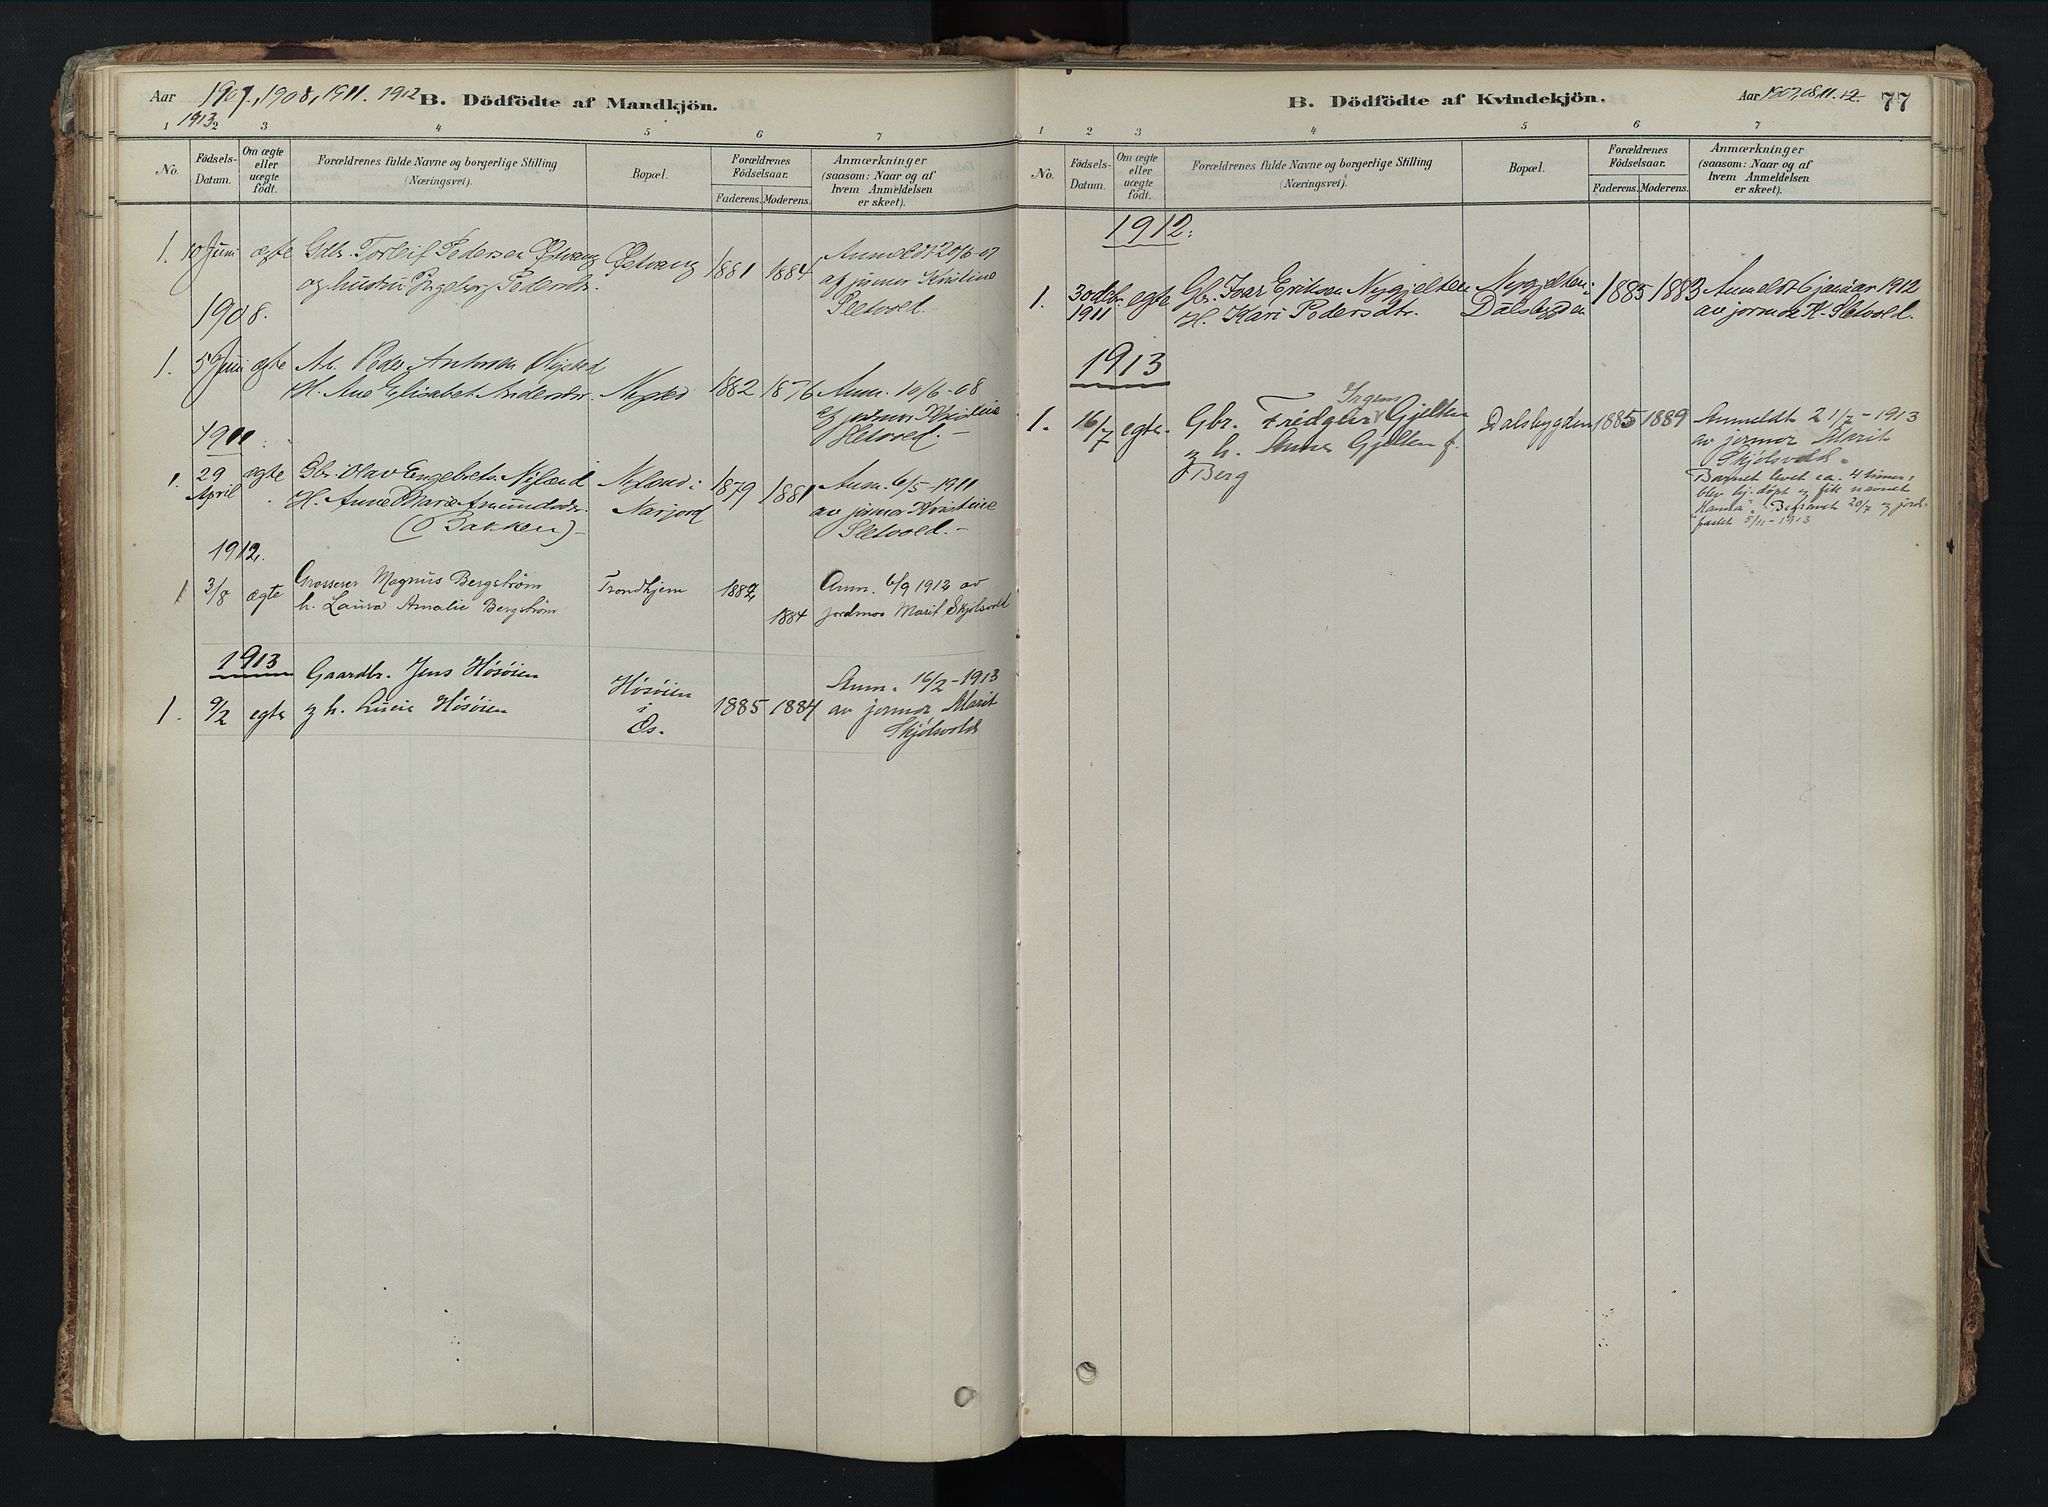 Aar 1907, 1908, 1911. 1912
1913
B. Dödfödte af Mandkjön.
1 2 3 4 5 6 7
No.
Fødsels-Datum.
Om ægte eller uægte født.
Forældrenes fulde Navne og borgerlige Stilling (Næringsvei).
Bopæl.
Forældrenes Fødselsaar.
Faderens. Moderens.
Anmærkninger (saasom: Naar og af hvem Anmeldelsen er skeet).
1. 10 Juni ægte Gdbr. Torleif Pedersen Østvang Østvang 1881 1884 Anmeldt 20/6-07
og hustru Ingeborg Pedersdtr. af jormor Kristine
Sletvold.
1908.
1. 5 Juni ægte Arb. Peder Nysted
H. Ane Elisabet Andersdtr. Nysted 1882 1876 Anm. 10/6-08
af jormor Kristine
Sletvold.-
1911
1. 29 ægte Gbr. Olav Engebrets. Nyland Nyland i 1879 1881 Anm. 6/5-1911
April H. Anne Marie Amundsdtr. Narjord av jormor Kristine
(Bakken)- Sletvold.-
1912.
1 3/8 ægte Grosserer Magnus Bergstrøm Trondhjem 1882 Anm. 6/9 1912 av
h. Laura Amalie Bergstrøm 1884 jordmor Marit Skjølsvold
1913
Gaardbr. Jens Høsøien Høsøien Anm. 16/2-1913
1. 9/2 egte og h. Høsøien i 1885 1884 av jormor Marit
Os. Skjølsvold
B. Dödfödte af Kvindekjön.
Aar 1907, 08, 11. 12. 77
1 2 3 4 5 6 7
No.
Fødsels-Datum.
Om ægte eller uægte født.
Forældrenes fulde Navne og borgerlige Stilling (Næringsvei).
Bopæl.
Forældrenes Fødselsaar.
Faderens. Moderens.
Anmærkninger (saasom: Naar og af hvem Anmeldelsen er skeet).
1912.
1. 30 dcbr. egte Gbr. Ivar Eriksen Nygjelten Nygjelten i 1885 1883 Anmeldt 6 januar 1912
1911 H. Kari Pedersdtr. Dalsbygden av jormor K. Sletvold.
1913
Ingens
1. 16/7 egte. Gbr. Gjelten Dalsbygden 1885 1889 Anmeldt 21/7-1913
og h. Anne Gjelten f. av jormor Marit
Berg Skjølsvold.
Barnet levet ca. 4 timer,
blev hj. døpt og fik navnet
"Hanna". Begravet 20/7 og jord-
fæstet 5/11-1913